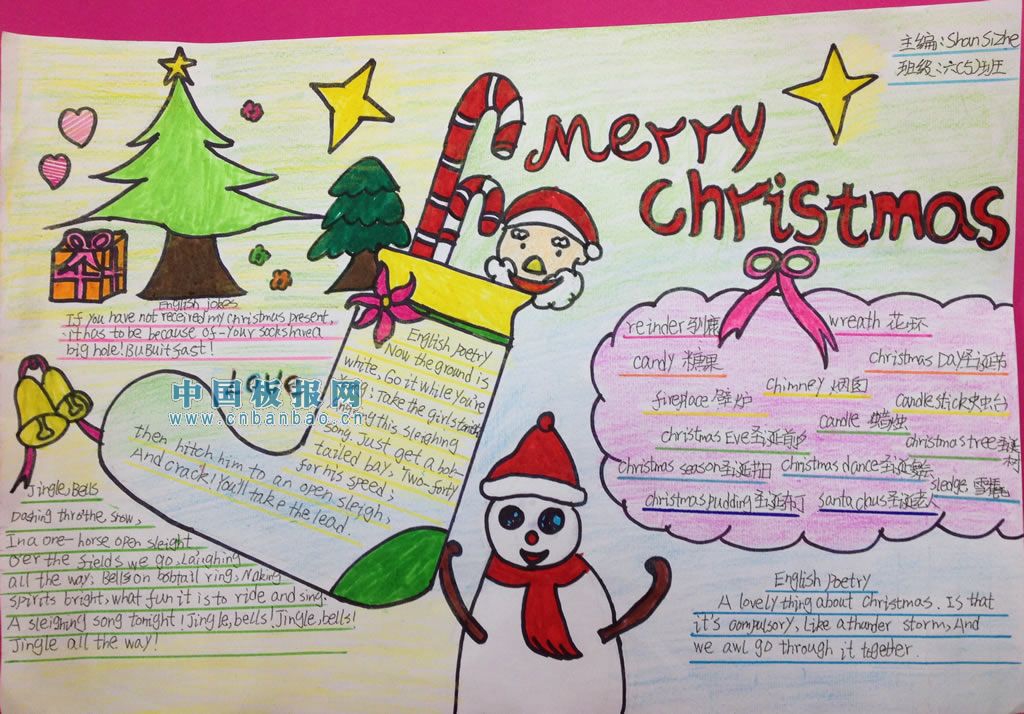 主编:Shan Sizhe
班级:六(5)班
Merry
Christmas
English jokes
If you have not received my christmas present,
it has to be because of-Your socks have a
big hole! Bu Buit fast!
Love
中国板报网
www.cnbanbao.cn
English Poetry
Now the ground is
white, Go it while You're
Young; Take the girls tonight
And sing this sleighing
song. Just get a bob-
tailed bay. Two-forty
for his speed;
then hitch him to an open sleigh,
And crack! You'll take the lead.
reinder 驯鹿
wreath 花环
candy 糖果
christmas DaY 圣诞节
chimney 烟囱
fireplace 壁炉
candle stick 火虫台
candle 蜡烛
christmas Eve 圣诞前夕
christmas tree 圣诞树
christmas season 圣诞节日
christmas dance 圣诞舞会
sledge 雪橇
christmas pudding 圣诞布丁
santa claus 圣诞老人
Jingle, Bells
Dashing thro' the snow,
In a one-horse open sleight
over the fields we go, Laughing
all the way; Bells on bobtail ring, Naking
spirits bright, what fun it is to ride and sing.
A sleighing song tonight! Jingle, bells! Jingle, bells!
Jingle all the way!
English Poetry
A lovely thing about christmas. Is that
it's compulsory, Like a thunder storm, And
we awl go through it together.